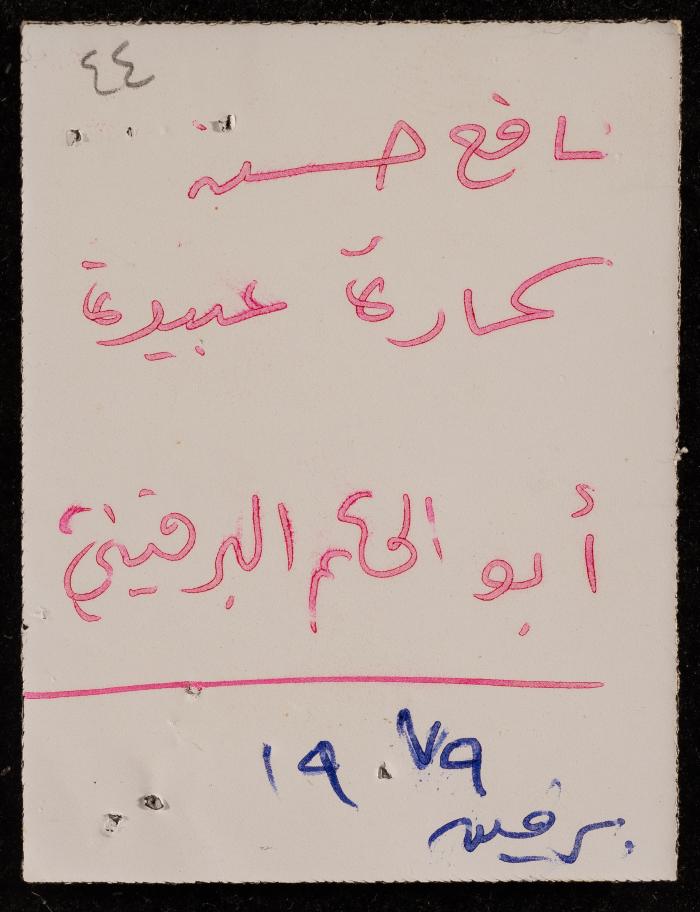 ٤٤
نافع حسن
عبيدة
أبو الحكم البرقيني
١٩٧٩
برقين